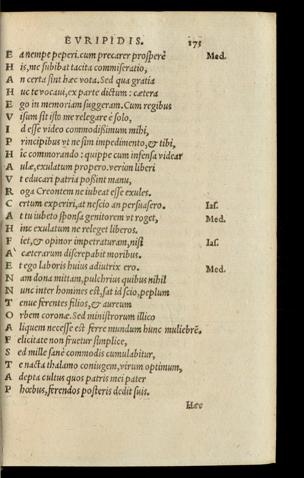 EVRIPIDIS. 175
E a nempe peperi. cum precarer prosperè Med.
H is, me subibat tacita commiseratio,
A n certa sint hæc vota. Sed qua gratia
H uc te vocaui, ex parte dictum: cætera
E go in memoriam suggeram. Cum regibus
V isum sit isto me relegare è solo,
I d esse video commodissimum mihi,
P rincipibus vt ne sim impedimento, & tibi,
H ic commorando: quippe cum infensa videar
A ulæ, exulatum propero. verùm liberi
V t educari patria possint manu,
R oga Creontem ne iubeat esse exules.
C ertum experiri, at nescio an persuasero. Ias.
A t tu iubeto sponsa genitorem vt roget, Med.
H inc exulatum ne releget liberos.
F iet, & opinor impetraturam, nisi Ias.
A` cæterarum discrepabit moribus.
E t ego laboris huius adiutrix ero. Med.
N am dona mittam, pulchrius quibus nihil
N unc inter homines est, sat id scio, peplum
T enue ferentes filios, & aureum
O rbem coronæ. Sed ministrorum illico
A liquem necesse est ferre mundum hunc muliebrē.
F elicitate non fruetur simplice,
S ed mille sanè commodis cumulabitur,
T e nacta thalamo coniugem, virum optimum,
A depta cultus quos patris mei pater
P hœbus, ferendos posteris dedit suis.
Hæc